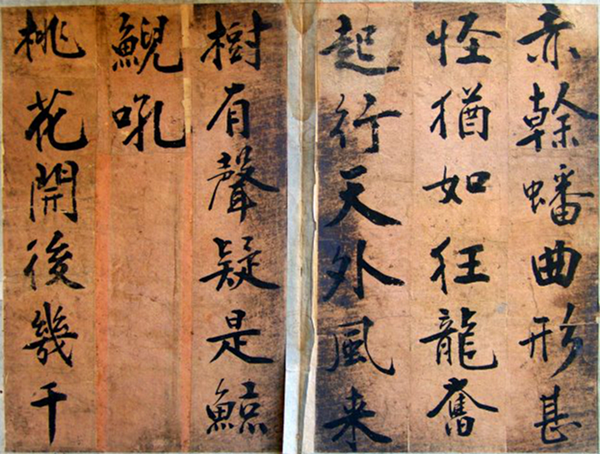 赤幹蟠曲形甚
怪猶如狂龍奮
起行天外風来
樹有聲疑是鯨
鯢吼
桃花開後幾千